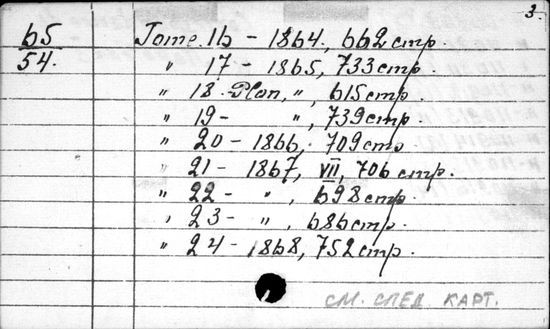 3.
65/54.
Tome. 16 - 1864, 662 стр.
" 17 - 1865, 733 стр.
" 18. , ", 615 стр.
" 19 - ", 739 стр.
" 20 - 1866, 709 стр
" 21 - 1867, VII, 706 стр.
" 22 - ", 698 стр.
" 23 - ", 686 стр.
" 24 - 1868, 752 стр.
СМ. СЛЕД. КАРТ.